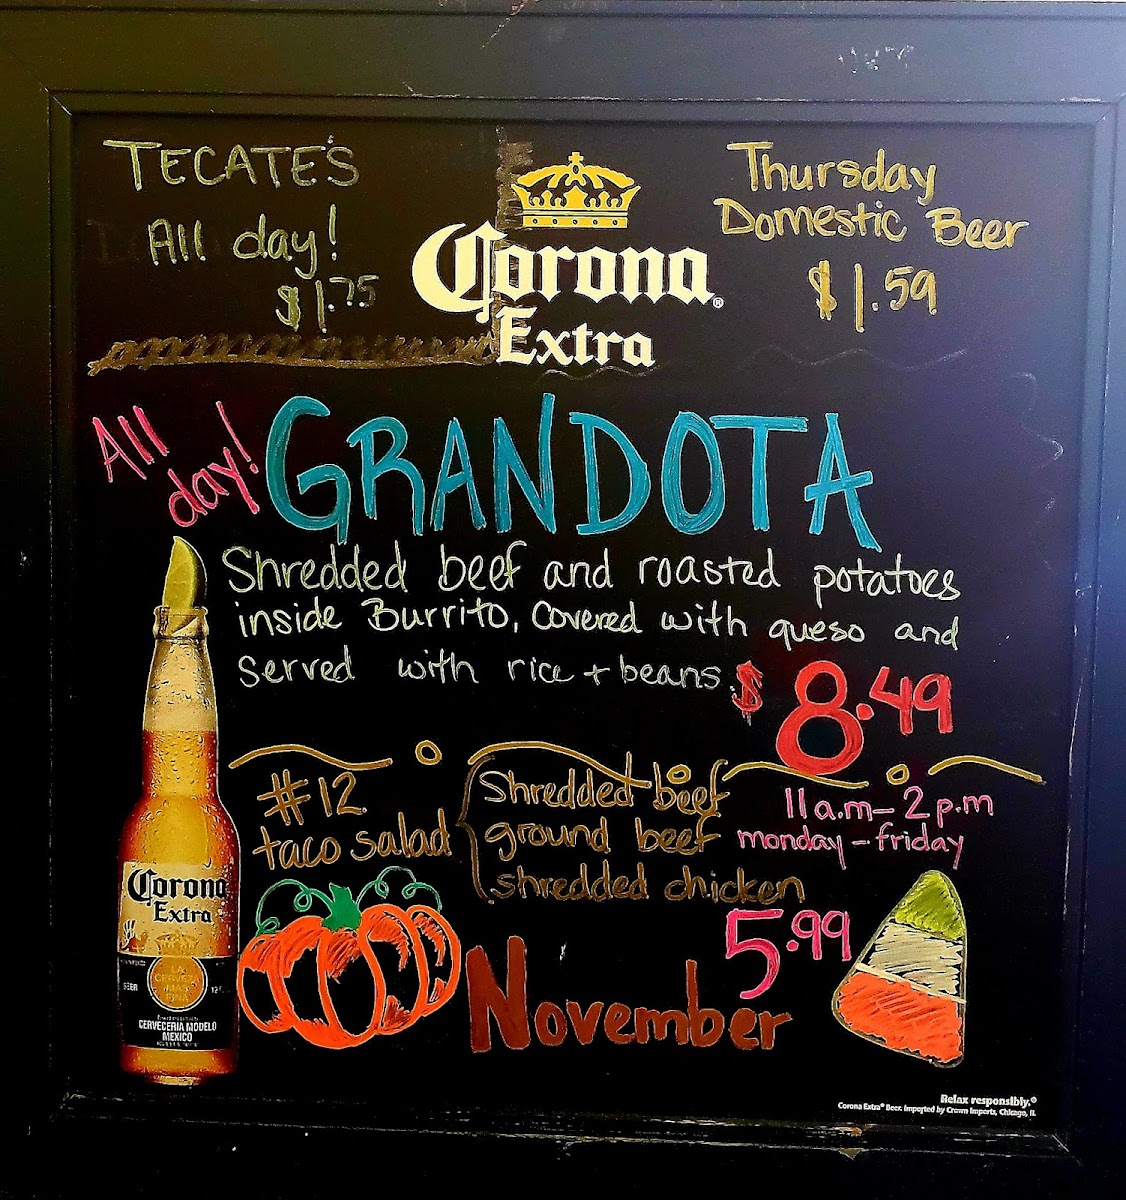 TECATE'S
All day!
$1.75
Corona
Extra
Thursday
Domestic Beer
$1.59
All
day!
GRANDOTA
Shredded beef and roasted potatoes
inside Burrito, Covered with queso and
served with rice + beans
$8.49
#12
taco salad
Shredded beef
ground beef
shredded chicken
11 a.m - 2 p.m
monday - friday
5.99
November
Corona
Extra
LA
CERVEZA
MAS
FINA
BEER
CERVECERIA MODELO
MEXICO
Relax responsibly.®
Corona Extra® Beer. Imported by Crown Imports, Chicago, IL